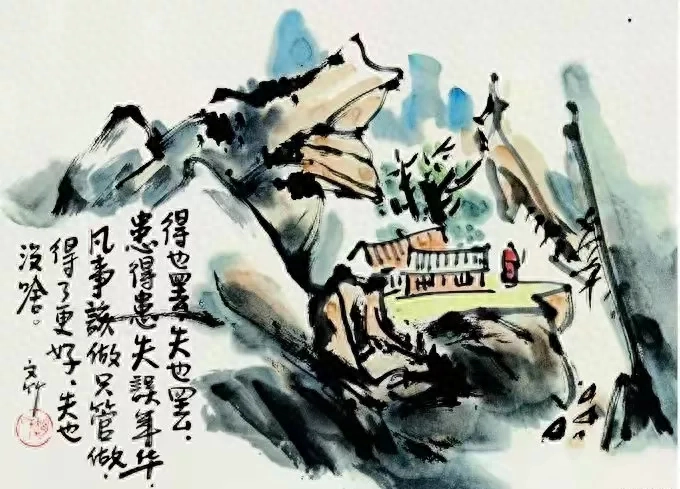 得也罢,失也罢,
患得患失误年华,
凡事該做只管做,
得了更好,失也
没啥。
文竹